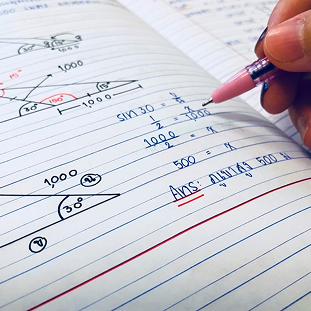 30° 15°
1,000
15°
30° 150°
1,000
sin 30 = x/1,000
1/2 = x/1,000
1000/2 = x
500 = x
Ans: 500
1,000
30°